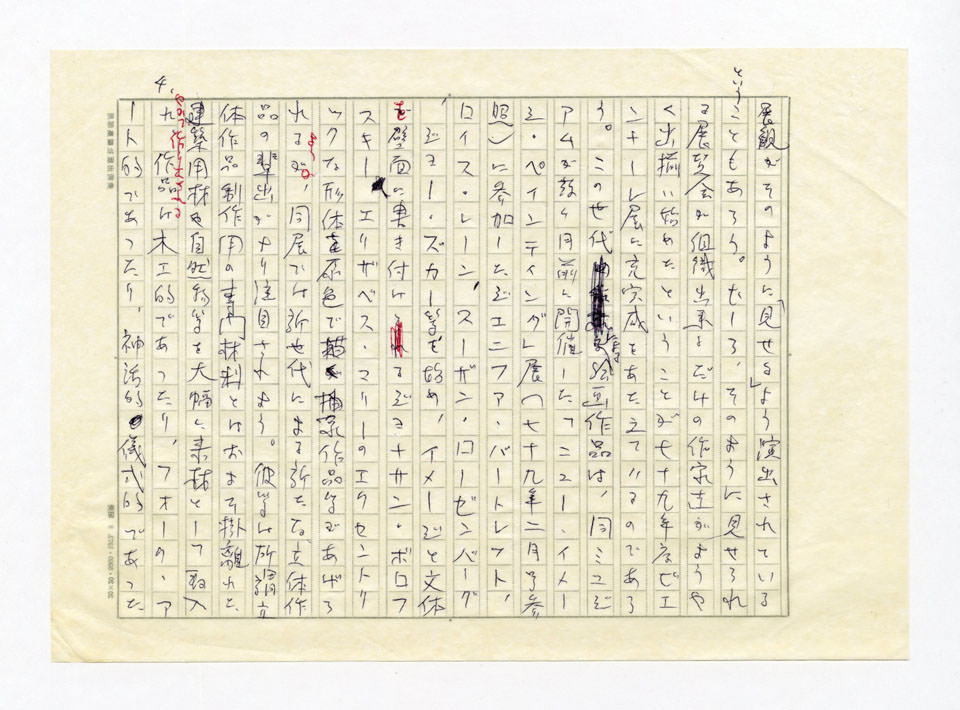 展観がそのように「見せる」よう演出されている
ということもあろう。むしろ、そのように見せられ
る展覧会が組織出来るだけの作家達がようや
く出揃い始めたということが七十九年度ビエ
ンナーレ展に充実感をあた立ているのであろ
う。この世代 絵画作品は、同ミュージ
アムが数ヶ月前に開催した「ニュー・イメー
ジ・ペインティング」展(七十九年二月号参
照)に参加したジェニファ・バートレット、
ロイス・レーン、スーザン・ローゼンバーグ
ジョー・ズカー等を始め、イメージと文体
を壁面に書き付けるジョナサン・ボロフ
スキー、エリザベス・マリーのエクセントリ
ックな形体を原色で描く抽象作品等があげら
れるが、同展では新世代による新たな立体作
品の輩出がより注目されよう。彼等は所謂立
体作品制作用の専門材料とはおよそ掛離れた、
建築用材や自然物等を大幅に素材として取入
れ、作り出される作品は木工的であったり、フォーク・ア
ート的であったり、神話的・儀式的であった
4.